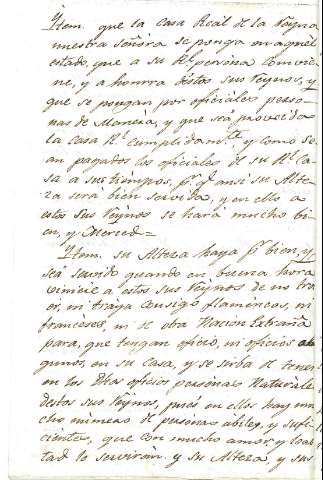 Ytem. que la Casa Real de la Reyna
nuestra señora se ponga en aquel
estado, que a su Rl. persona convie
ne, y a honrra destos sus Reynos, y
que se pongan por oficiales perso-
nas de Manera, y que sea proveida
la casa Rl. cumplidamte. y como se
an pagados los oficiales de su Rl. Ca
sa a sus tiempos, pr. q. ansi su Alte
za será bien servida, y en ello a
estos sus Reynos se hará mucho bi
en, y Merced=
Ytem. su Alteza haya pr. bien, y
sea servido quando en buena hora
viniere a estos sus Reynos de no tra
er, ni trayga consigo flamencos, ni
franceses, ni de otra Nacion Extraña
para, que tengan oficio, ni oficios al
gunos, en su casa, y se sirba de tener
en los dhos oficios personas Naturale
destos sus Reynos, pues en ellos hay mu
cho número de personas abiles, y sufi
cientes, que con mucho amor y leal
tad le serviran. y su Alteza, y sus